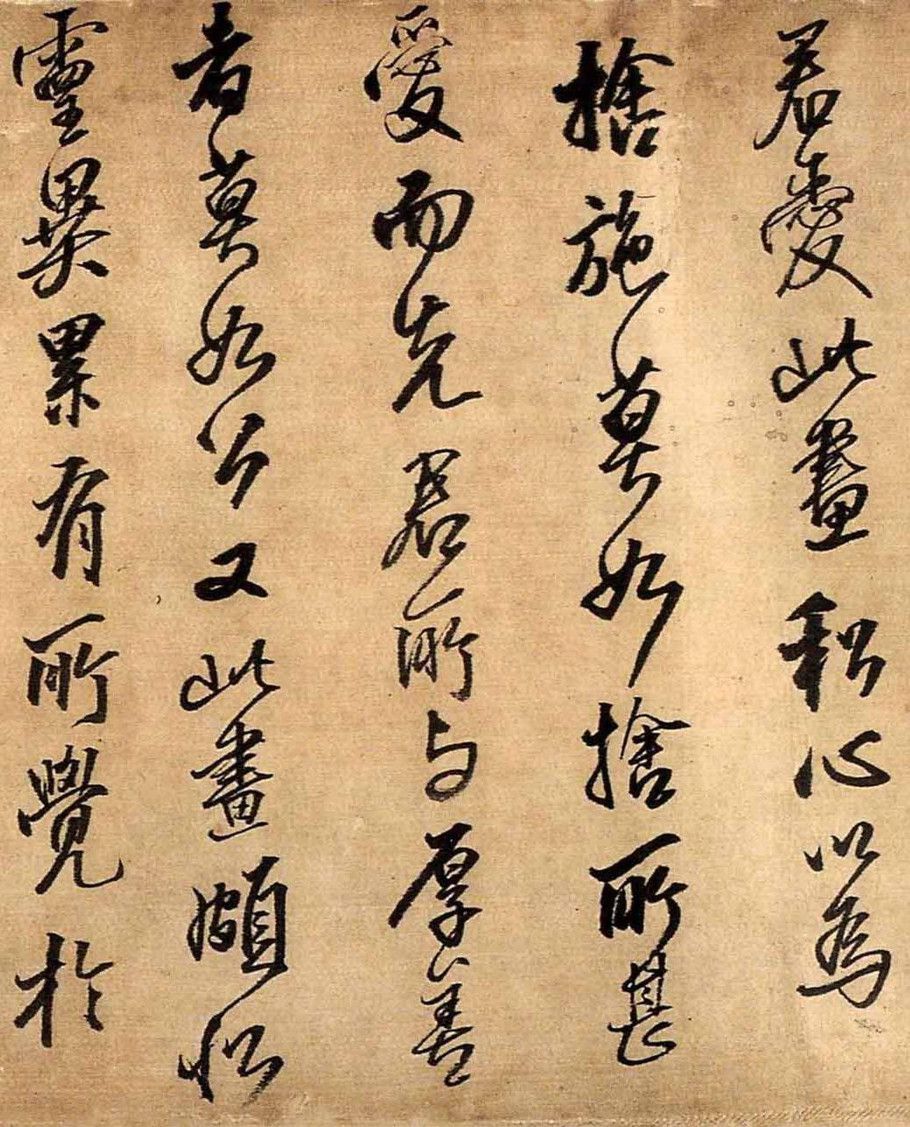 君愛此畫私心以為
捨施莫如捨所甚
愛而先君所与厚善
者莫如公又此畫頗似
靈異累有所覺於